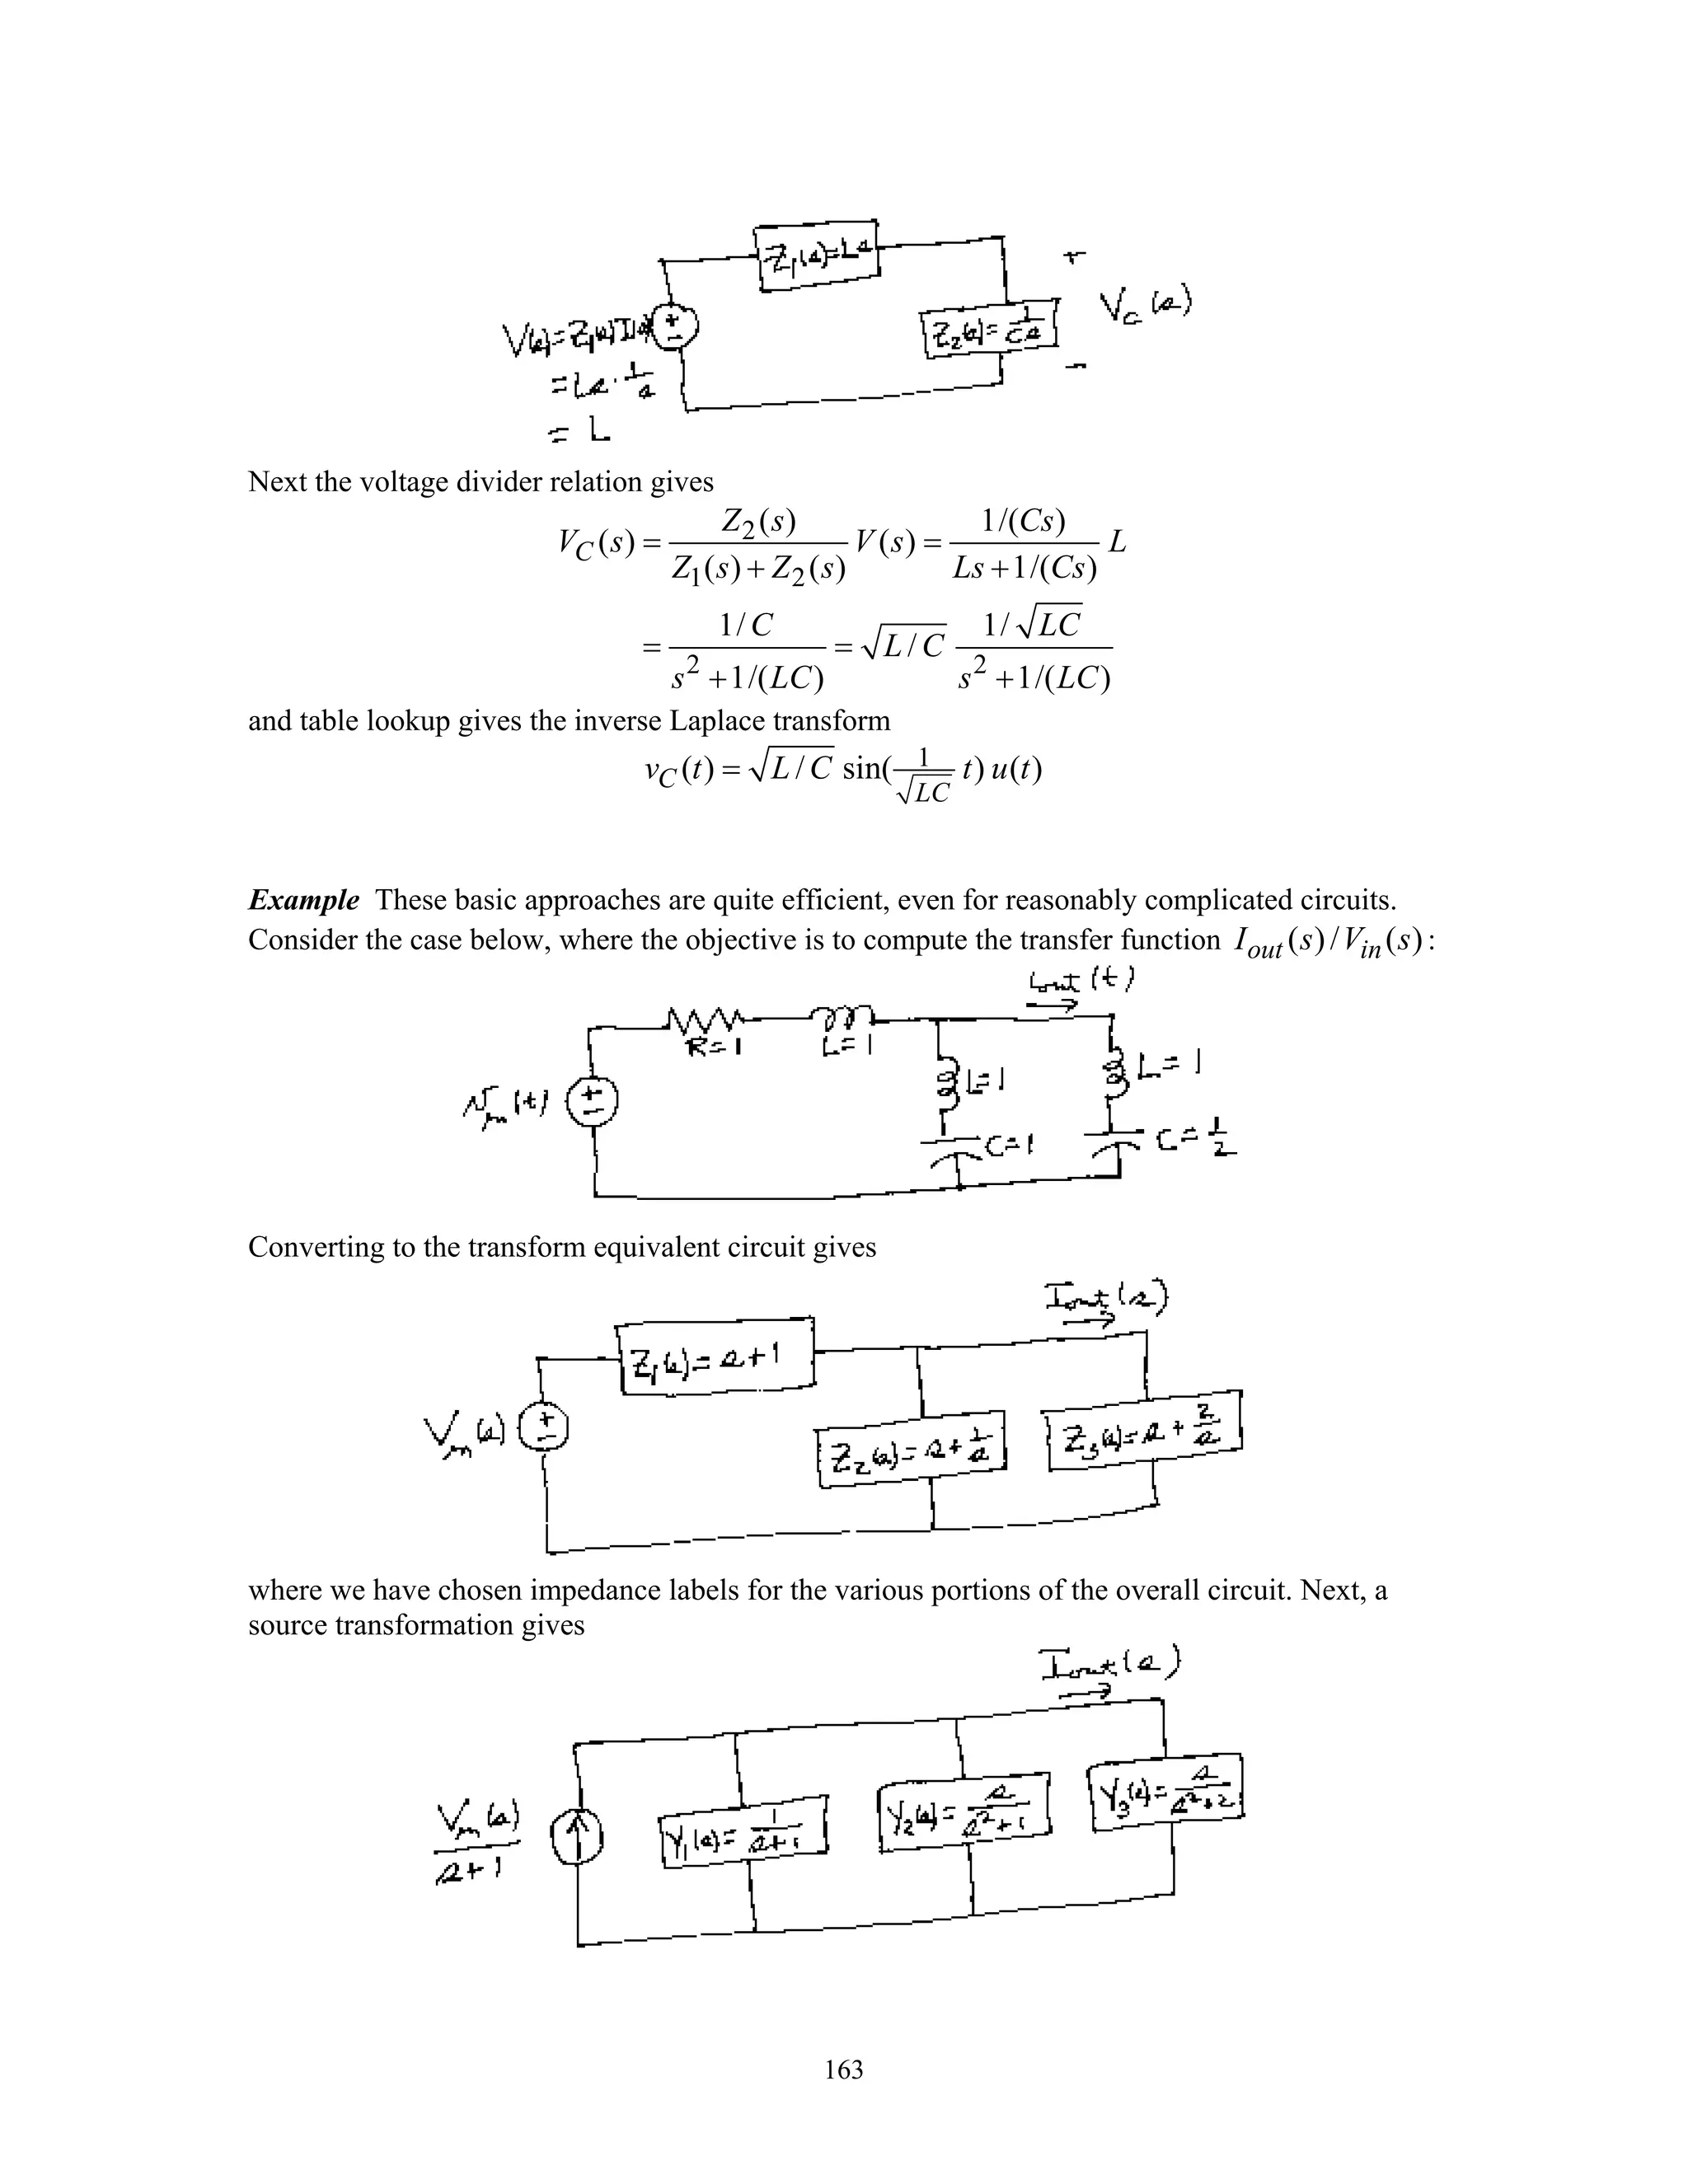 Z₁(s)=Ls
+
V(s)=Z₁(s)I(s)
+
−
Z₂(s)=1/(Cs)
V_C(s)
=Ls·1/s
−
= L
Next the voltage divider relation gives
V_C(s) = Z₂(s)/(Z₁(s) + Z₂(s)) V(s) = (1/(Cs))/(Ls + 1/(Cs)) L
= (1/C)/(s² + 1/(LC)) = √(L/C) (1/√(LC))/(s² + 1/(LC))
and table lookup gives the inverse Laplace transform
v_C(t) = √(L/C) sin( 1/√(LC) t) u(t)
Example These basic approaches are quite efficient, even for reasonably complicated circuits.
Consider the case below, where the objective is to compute the transfer function I_out(s)/V_in(s):
i_out(t)
R=1 L=1
L=1 L=1
v_in(t)
+
−
C=1 C=1/2
Converting to the transform equivalent circuit gives
I_out(s)
Z₁(s)=s+1
V_in(s)
+
−
Z₂(s)=s+1/s Z₃(s)=s+2/s
where we have chosen impedance labels for the various portions of the overall circuit. Next, a
source transformation gives
I_out(s)
V_in(s)/(s+1) Y₁(s)=1/(s+1) Y₂(s)=s/(s²+1) Y₃(s)=s/(s²+2)
163